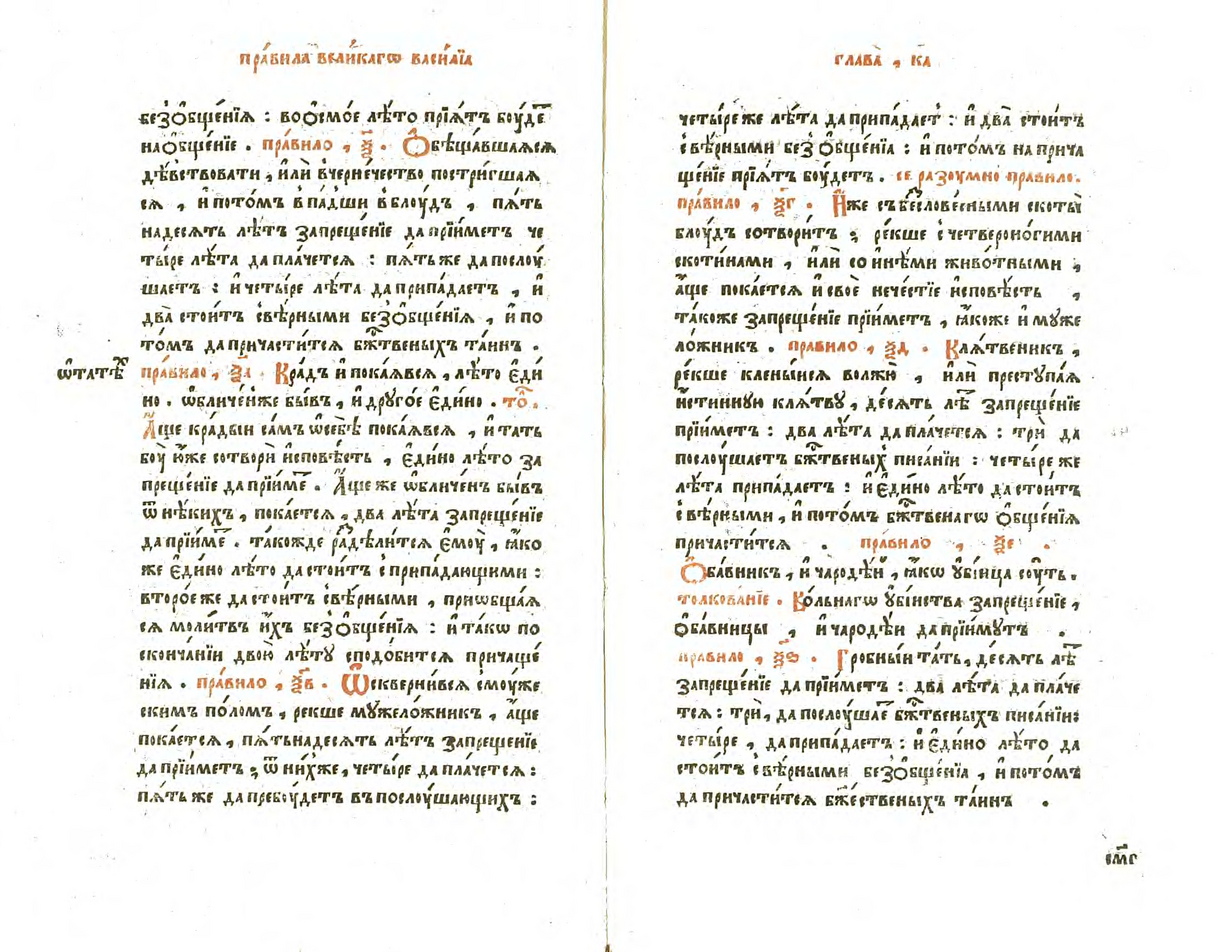 пра́вила вели́кагѡ васи́лїа
без̾ѻбще́нїѧ : воѻсмо́е лѣ́то прїѧ́тъ боу́де
наѻбще́нїе . пра́вило , ѯ҃ . Ѻбѣща́вшаѧсѧ
дѣ́вствовати , и҆лѝ вче́рнечество постри́гшаѧ
сѧ , и҆ пото́мъ впа́дши вблоу́дъ , пѧ́ть
на́десѧть лѣ́тъ запреще́нїе да прїи́метъ че
ты́ре лѣ́та да пла́четсѧ : пѧ́ть же да послоу́
шаетъ : и҆ четы́ре лѣ́та да припа́даетъ , и҆
два̀ стои́тъ свѣ́рными без̾ѻбще́нїѧ , и҆ по
то́мъ да причасти́тсѧ бж҃твеныхъ та́инъ .
ѡ҆татѣ́х
пра́вило , ѯ҃а . Кра́дъ и҆ пока́ѧвсѧ , лѣ́то є҆ди́
но . ѡ҆бличе́нже бы́въ , и҆ друго́е є҆ди́но . то́л .
А҆́ще кра́дыи са́мъ ѡ҆себѣ̀ пока́ѧвсѧ , и҆ тать
боу̀ ю҆́же сотворѝ и҆сповѣ́сть , є҆ди́но лѣ́то за
преще́нїе да прїи́ме . А҆́ще же ѡ҆бличе́нъ бы́въ
ѿ нѣ́кихъ , пока́етсѧ , два̀ лѣ́та запреще́нїе
да прїи́ме . та́кожде раздѣ́литсѧ є҆моу̀ , ꙗ҆́ко
же є҆ди́но лѣ́то да стои́тъ с припа́дающими :
второ́е же да стои́тъ свѣ́рными , приѡбща́ѧ
сѧ моли́твъ и҆́хъ без̾ѻбще́нїѧ : и҆ та́кѡ по
сконча́нїи двою̀ лѣ́ту сподо́битсѧ причаще́
нїѧ . пра́вило , ѯ҃в . Ѿскверни́всѧ смоу́же
скимъ по́ломъ , ре́кше мꙋжело́жникъ , а҆́ще
пока́етсѧ , пѧ́тьна́десѧть лѣ́тъ запреще́нїе
да прїи́метъ ; ѿ ни́хже , четы́ре да пла́четсѧ :
пѧ́ть же да пребоу́детъ въ послоу́шающихъ :
глава̀ , к҃а
четы́ре же лѣ́та да припа́даетъ : и҆ два̀ стои́тъ
свѣ́рными без̾ ѻбще́нїа : и҆ пото́мъ на прича
ще́нїе прїѧ́тъ боу́детъ . се разоу́мно пра́вило .
пра́вило , ѯ҃г . И҆́же съ бесловесными скоты̀
блоу́дъ сотвори́тъ ; ре́кше с четвероно́гими
ско́тинами , и҆лѝ со и҆нѣ́ми живо́тными ,
а҆́ще пока́етсѧ и҆ своѐ нече́стїе и҆сповѣ́сть ,
та́коже запреще́нїе прїи́метъ , ꙗ҆́коже и҆ мꙋже
ло́жникъ . пра́вило , ѯ҃д . Клѧ́твеникъ ,
ре́кше клены́исѧ во́лжю , и҆лѝ престꙋпа́ѧ
и҆́стиннꙋю клѧ́твꙋ , де́сѧть лѣ́т запреще́нїе
прїи́метъ : два̀ лѣ́та да пла́четсѧ : трѝ да
послоу́шаетъ бж҃твеныхъ писа́нїи : четы́ре же
лѣ́та припа́даетъ : и҆ є҆ди́но лѣ́то да стои́тъ
свѣ́рными , и҆ пото́мъ бж҃твенагѡ ѻбще́нїѧ
причасти́тсѧ . пра́вило , ѯ҃е .
Ѻба́вникъ , и҆ чародѣ́и , ꙗ҆́кѡ ᲂу҆бі́ица соу́ть .
толкова́нїе . Во́льнагѡ ᲂу҆бі́иства запреще́нїе ,
ѻба́вницы , и҆ чародѣ́и да прїи́мꙋтъ .
пра́вило , ѯ҃ѕ . Гро́бныи та́ть , де́сѧть лѣ́т
запреще́нїе да прїи́метъ : два̀ лѣ́та да пла́че
тсѧ : трѝ , да послоу́шае бж҃твеныхъ писа́нїи :
четы́ре , да припа́даетъ : и҆ є҆ди́но лѣ́то да
стои́тъ свѣ́рными без̾ѻбще́нїа , и҆ пото́мъ
да причасти́тсѧ бж҃ественыхъ та́инъ .
смг҃